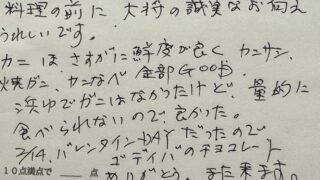 料理の前に 大将の誠実なお伺え
うれしいです。
カニはさすがに鮮度が良く カニサシ、
火実ガニ、カニなべ 全部GOOD.
浜ゆでガニはなかったけど、量的に
食べられないので良かった。
2/14.バレンタインDAYだったので
ゴディバのチョコレート
10点満点で ＿＿ 点 ありがとう。また来ます。